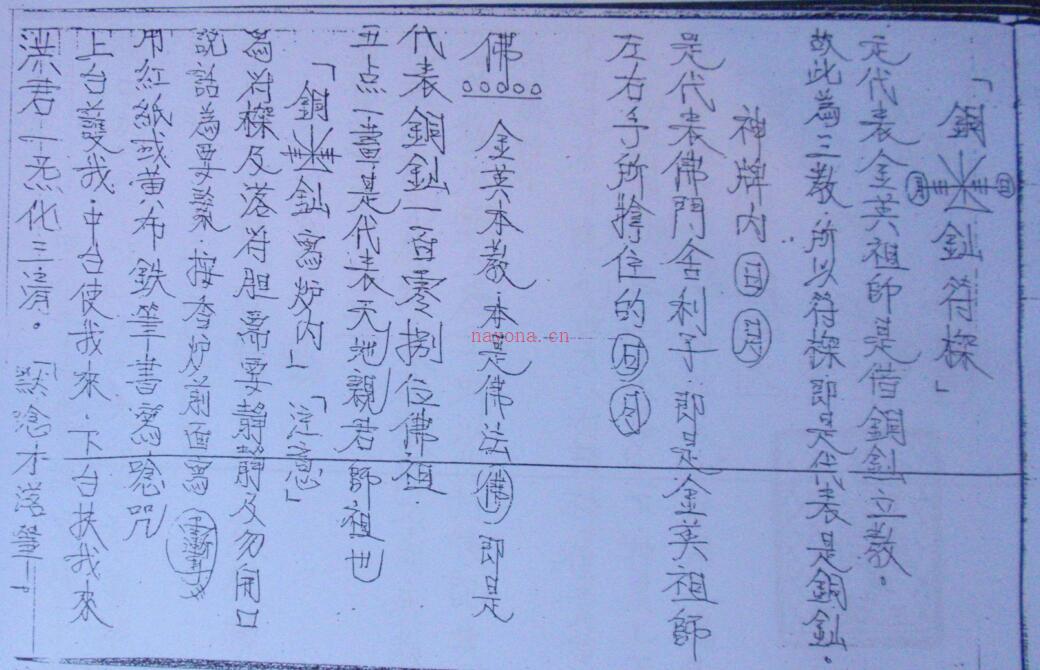 「銅釓符樑」
日 月
定代表金英祖師是借銅釓立教。
故此為三教.所以符樑即是代表是銅釓.
神牌內 日 月
是代表佛門舍利子.即是金英祖師
左右手所擔住的 日 月
佛 金英本教.本是佛法 佛.即是
代表銅釓一百零捌位佛祖
五点一畫是代表天地親君師祖也
「銅釓寫炉內」「注意」
為符樑及落符胆需要靜靜及勿開口
說話為要緊.按香炉前面寫
用紅紙或黃布鉄筆書寫唸咒
上台發我.中台使我來.下台扶我來
洪君一炁化三清。 唸才落筆
nayona.cn